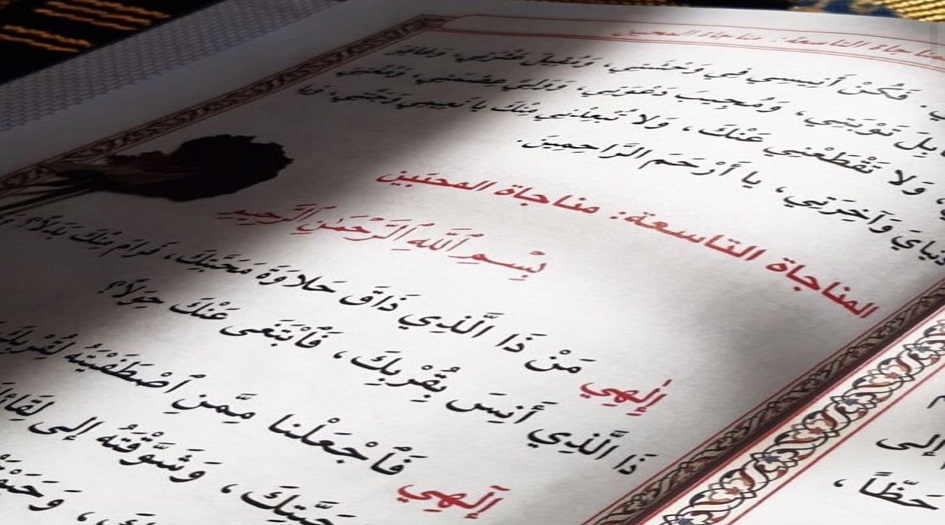 المناجاة التاسعة: مناجاة المحبين
فَكُنْ أَنِيسِي فِي وَحْشَتِي، وَمُقِيلَ عَثْرَتِي، وَغَافِرَ
تَوْبَتِي، وَمُجِيبَ دَعْوَتِي، وَوَلِيَّ عِصْمَتِي، وَمُغْنِيَ
، وَلا تَقْطَعْنِي عَنْكَ، وَلا تُبْعِدْنِي مِنْكَ يا نَعِيمِي وَجَنَّتِي، وَيا
دُنْيايَ وَآخِرَتِي، يا أَرْحَمَ الرَّاحِمِينَ.
المناجاة التاسعة: مناجاة المحبّين
بِسْمِ ٱللَّهِ ٱلرَّحْمَٰنِ ٱلرَّحِيمِ
إِلٰهِي مَنْ ذَا الَّذِي ذَاقَ حَلاوَةَ مَحَبَّتِكَ، فَرامَ مِنْكَ بَدَلاً؟
ذَا الَّذِي أَنِسَ بِقُرْبِكَ، فَٱبْتَغَى عَنْكَ حِوَلاً؟
إِلٰهِي فَٱجْعَلْنا مِمَّنِ ٱصْطَفَيْتَهُ لِقُرْبِكَ
، وَشَوَّقْتَهُ إِلى لِقَائِكَ
إِلى
حَظّاً،